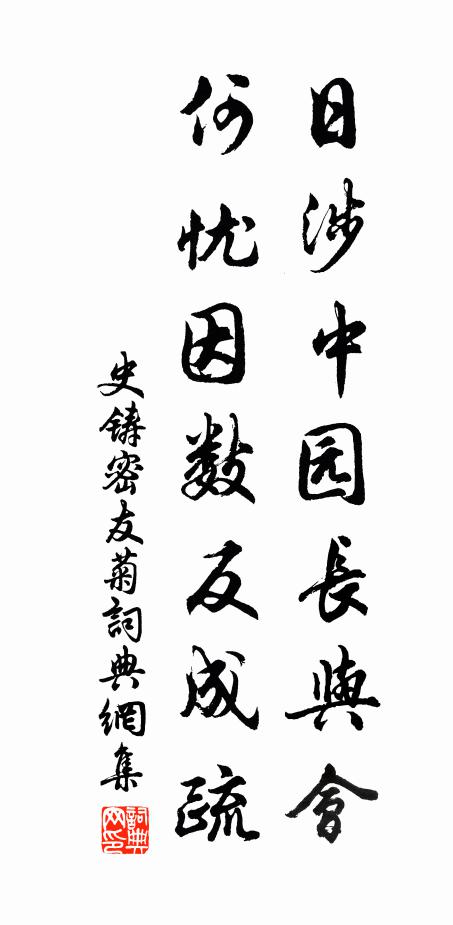 日涉中园長與會
何忧因数反成疏
史鑄密友菊詞典網集
詞典网印